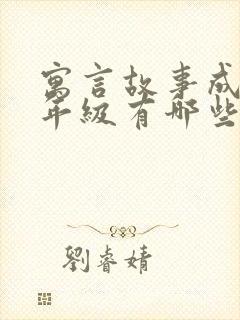 寓言故事成
年级有哪些
劉睿婧